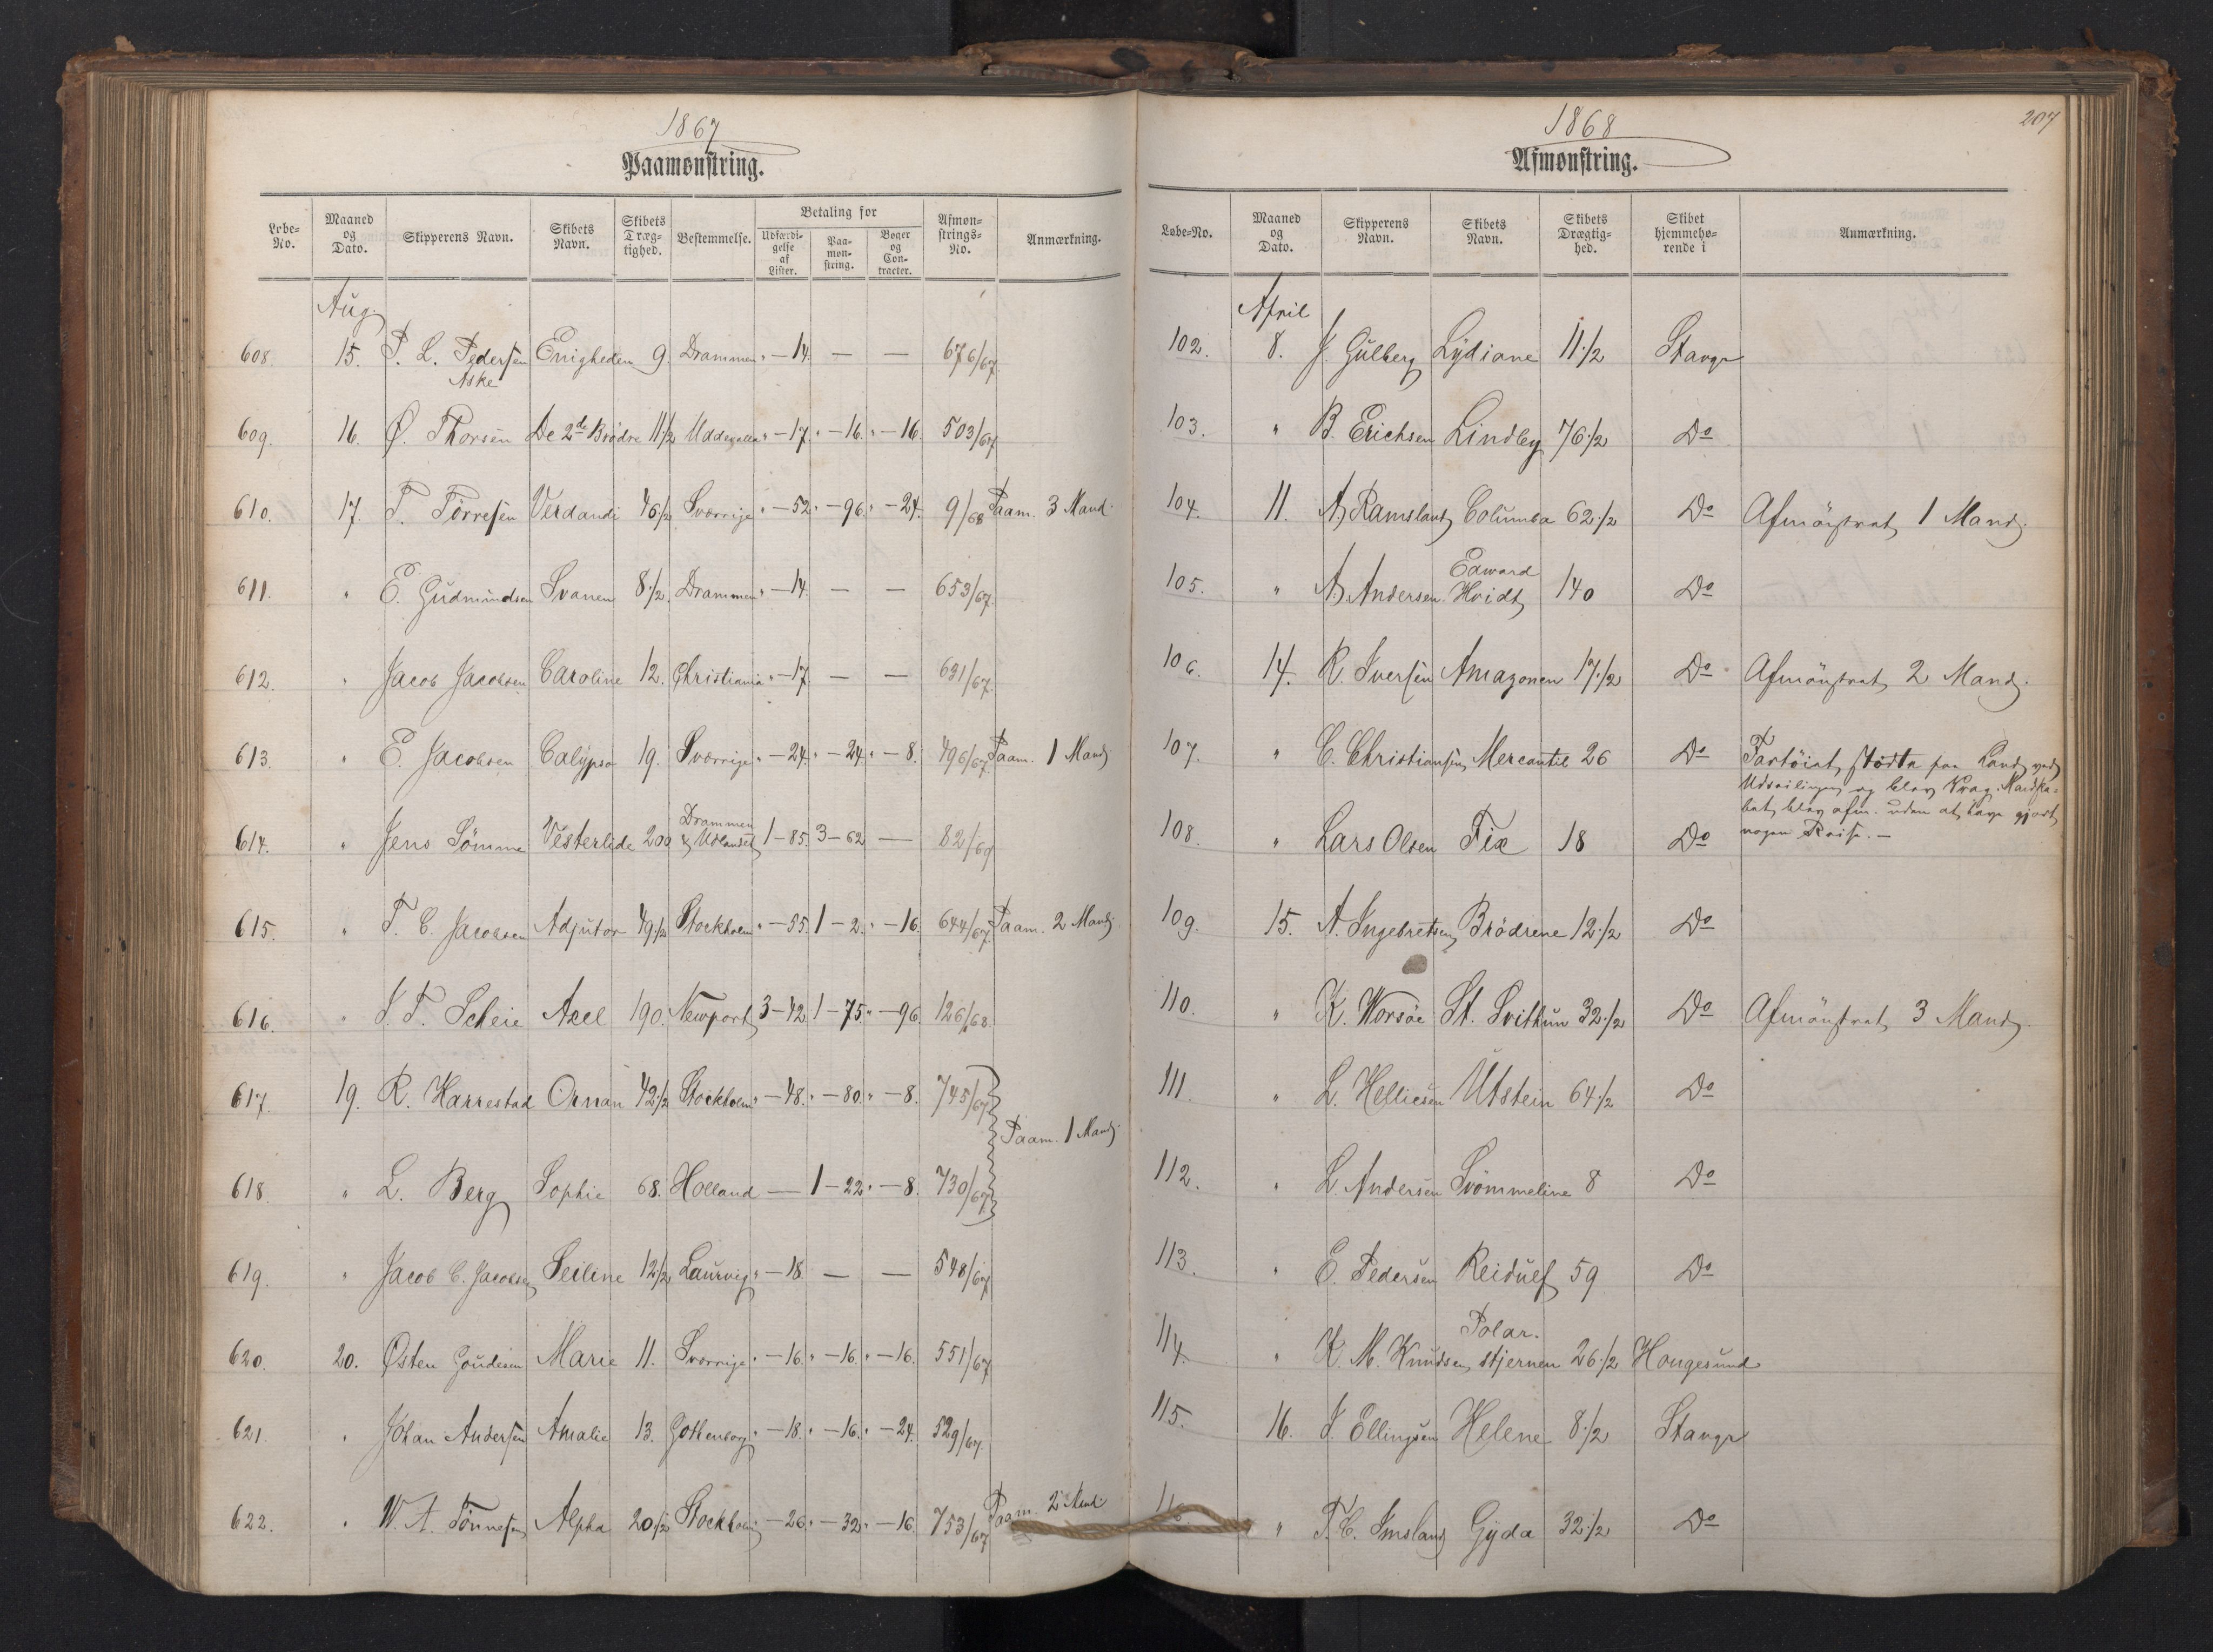 1867
Paamønstring.
Løbe-No. Maaned og Dato. Skipperens Navn. Skibets Navn. Skibets Dræg-tighed. Bestemmelse. Betaling for Udfærdi-gelse af Lister. Paa-møn-string. Bøger og Con-tracter. Afmøn-strings-No. Anmærkning.
Aug.
608. 15. P. L. Pedersen Aske Enigheden 9. Drammen " - 14. — — 676/67
609. 16. Ø. Thorsen De 2de Brødre 11 1/2 Uddevalla " - 17. " - 16. " - 16. 503/67
610. 17. T. Törresen Verdandi 46 1/2 Sverrige " - 52. " - 96. " - 24. 9/68 Paam. 3 Mand.
611. " E. Gudmundsen Svanen 8 1/2. Drammen " - 14. — — 653/67.
612. " Jacob Jacobsen Caroline 12. Christiania " - 17. — — 631/67.
613. " E. Jacobsen Calypso 19. Sverrige " - 24. " - 24. " - 8. 496/67. Paam. 1 Mand
614. " Jens Sömme Vesterlide 200 Drammen & Udlandet 1 - 85. 3 - 62 — 82/69
615. " T. C. Jacobsen Adjutor 49 1/2 Stockholm " - 55. 1 - 2. " - 16. 644/67. Paam. 2 Mand.
616. " J. T. Scheie Axel 190. Newport 3 - 42. 1 - 75. " - 96. 126/68.
617. 19. R. Harrestad Ornan 42 1/2 Stockholm " - 48. " - 80. " - 8. 745/67
Paam. 1 Mand.
618. " L. Berg Sophie 68. Holland — 1 - 22. " - 8. 730/67
619. " Jacob C. Jacobsen Seiline 12 1/2 Laurvig " - 18. — — 548/67
620. 20. Østen Goudesen Marie 11. Sverrige " - 16. " - 16. " - 16. 551/67
621. " Johan Andersen Amalie 13. Gothenborg " - 18. " - 16. " - 24. 529/67.
622. " W. A. Tönnesen Alpha 20 1/2 Stockholm " - 26. " - 32. " - 16. 753/67 Paam. 2 Mand.
207
1868
Afmønstring.
Løbe-No. Maaned og Dato. Skipperens Navn. Skibets Navn. Skibets Drægtig-hed. Skibet hjemmehø-rende i Anmærkning.
April
102. 8. J. Gulberg Lydiane 11 1/2 Stavgr
103. " B. Erichsen Lindby 76 1/2 Do
104. 11. A. Ramsland Columba 62 1/2 Do Afmönstret 1 Mand.
105. " A. Andersen Edward Hvidt 140 Do
106. 14. R. Iversen Amazonen 17 1/2 Do Afmönstret 2 Mand.
107. " C. Christiansen Mercantil 26 Do Fartöiet stödte paa Land ved
Udseilingen og blev Vrag. Mandska-
bet blev afm. uden at have gjort
nogen Reise. —
108. " Lars Olsen Fix 18 Do
109. 15. A. Ingebretsen Brödrene 12 1/2 Do
110. " K. Worsöe St. Svithun 32 1/2 Do Afmönstret 3 Mand.
111. " L. Helliesen Utstein 64 1/2 Do
112. " L. Andersen Svömmeline 8 Do
113. " E. Pedersen Reidulf 59 Do
114. " K. M. Knudsen Polar. stjernen 26 1/2 Hougesund
115. 16. J. Ellingsen Helene 8 1/2 Stavgr
116. " T. C. Imsland Gyda 32 1/2 Do